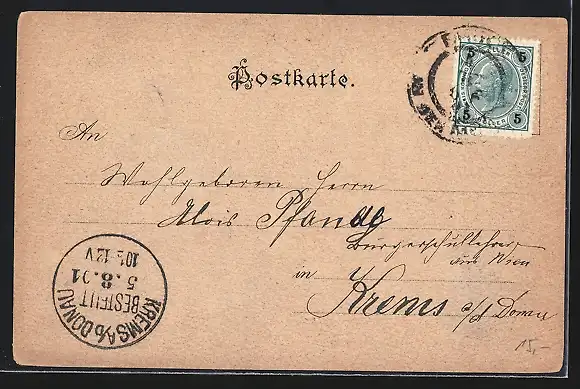 Postkarte.
5 5
5 5
An
Wohlgeboren Herrn
Alois Pfandl
Bürgerschullehrer
aus Wien
in
Krems a/d Donau
KREMS A/D DONAU
BESTELLT
5.8.01
10½-12V
15,-